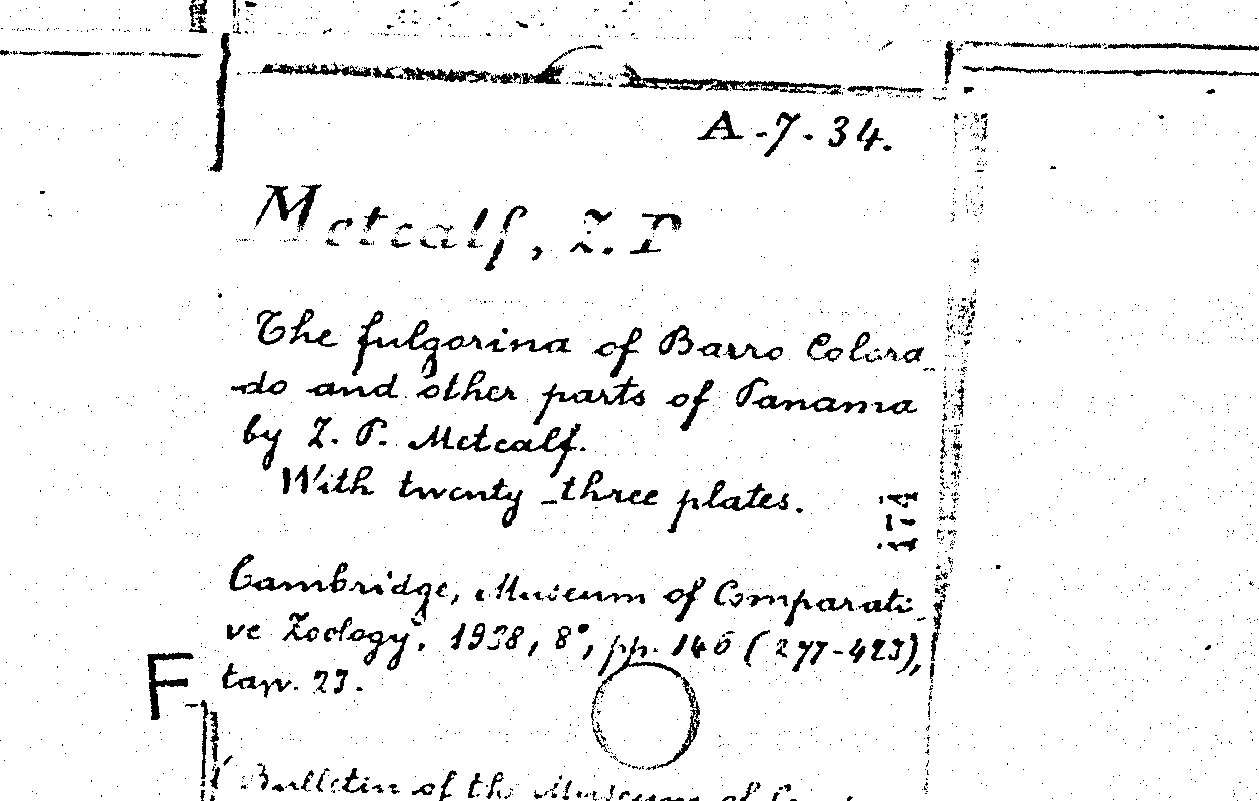 A-7-34.
Metcalf, Z. P
The fulgorina of Barro Colora_
do and other parts of Panama
by Z. P. Metcalf.
With twenty-three plates.
174
Cambridge, Museum of Comparati_
ve Zoology, 1938, 8°, pp. 146 (277-423),
F
tav. 23.
(Bulletin of the Museum of